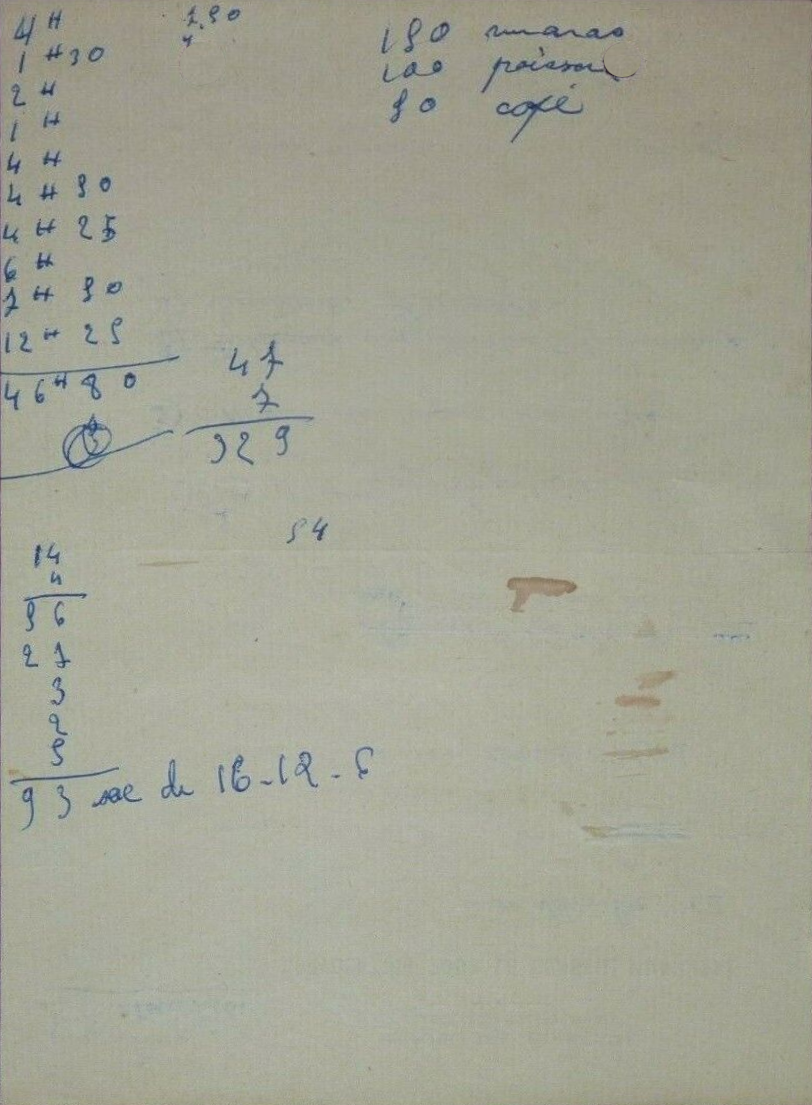 4 H
1 H 30
2 H
1 H
4 H
4 H 50
4 H 25
6 H
7 H 50
12 H 25
46 H 80
7.50
4
150
100 poisson
50 café
47
7
329
54
14
4
56
27
3
2
5
93 sac de 16-12-